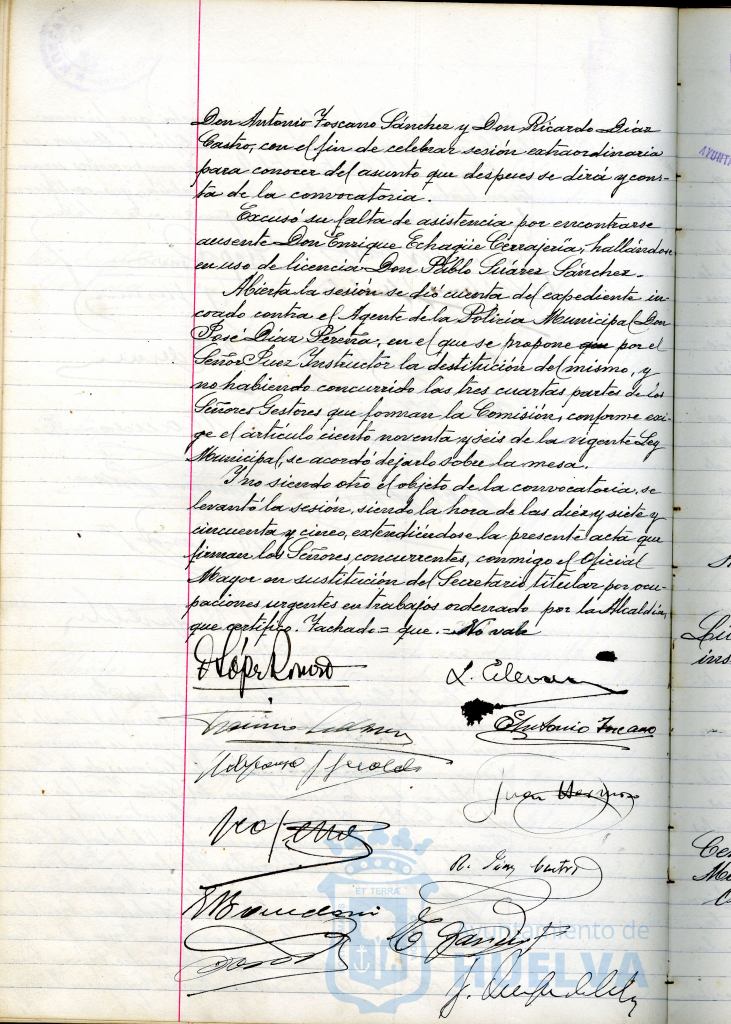 Don Antonio Toscano Sánchez y Don Ricardo Díaz
Castro, con el fin de celebrar sesión extraordinaria
para conocer del asunto que despues se dirá y cons-
ta de la convocatoria.
Excusó su falta de asistencia por encontrarse
ausente Don Enrique Echagüe Cerrajería, hallándose
en uso de licencia Don Pablo Suárez Sánchez.
Abierta la sesión se dió cuenta del expediente in-
coado contra el Agente de la Policía Municipal Don
José Díaz Pereña, en el que se propone que por el
Señor Juez Instructor la destitución del mismo, y
no habiendo concurrido las tres cuartas partes de los
Señores Gestores que forman la Comisión, conforme exi-
ge el artículo ciento noventa y seis de la vigente Ley
Municipal, se acordó dejarlo sobre la mesa.
Y no siendo otro el objeto de la convocatoria, se
levantó la sesión, siendo la hora de las diez y siete y
cincuenta y cinco, extendiéndose la presente acta que
firman los Señores concurrentes, conmigo el Oficial
Mayor en sustitución del Secretario titular por ocu-
paciones urgentes en trabajos ordenado por la Alcaldía,
que certifico. Tachado = que. = No vale
Antonio Toscano
Juan
R. Díaz Castro
ET TERRÆ
Ayuntamiento de
HUELVA